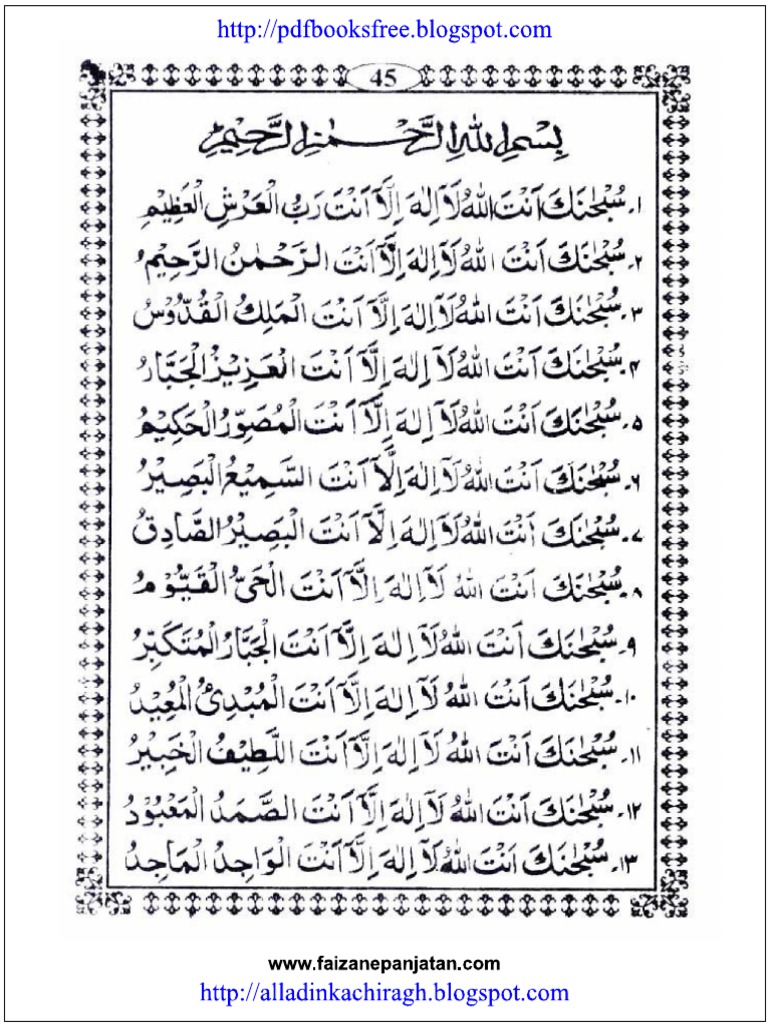 http://pdfbooksfree.blogspot.com
45
بِسْمِ اللهِ الرَّحْمٰنِ الرَّحِيْمِ
۱۔ سُبْحٰنَكَ اَنْتَ اللهُ لَآ اِلٰهَ اِلَّآ اَنْتَ رَبُّ الْعَرْشِ الْعَظِيْمِ
۲۔ سُبْحٰنَكَ اَنْتَ اللهُ لَآ اِلٰهَ اِلَّآ اَنْتَ الرَّحْمٰنُ الرَّحِيْمُ
۳۔ سُبْحٰنَكَ اَنْتَ اللهُ لَآ اِلٰهَ اِلَّآ اَنْتَ الْمَلِكُ الْقُدُّوْسُ
۴۔ سُبْحٰنَكَ اَنْتَ اللهُ لَآ اِلٰهَ اِلَّآ اَنْتَ الْعَزِيْزُ الْجَبَّارُ
۵۔ سُبْحٰنَكَ اَنْتَ اللهُ لَآ اِلٰهَ اِلَّآ اَنْتَ الْمُصَوِّرُ الْحَكِيْمُ
۶۔ سُبْحٰنَكَ اَنْتَ اللهُ لَآ اِلٰهَ اِلَّآ اَنْتَ السَّمِيْعُ الْبَصِيْرُ
۷۔ سُبْحٰنَكَ اَنْتَ اللهُ لَآ اِلٰهَ اِلَّآ اَنْتَ الْبَصِيْرُ الصَّادِقُ
۸۔ سُبْحٰنَكَ اَنْتَ اللهُ لَآ اِلٰهَ اِلَّآ اَنْتَ الْحَيُّ الْقَيُّوْمُ
۹۔ سُبْحٰنَكَ اَنْتَ اللهُ لَآ اِلٰهَ اِلَّآ اَنْتَ الْجَبَّارُ الْمُتَكَبِّرُ
۱۰۔ سُبْحٰنَكَ اَنْتَ اللهُ لَآ اِلٰهَ اِلَّآ اَنْتَ الْمُبْدِئُ الْمُعِيْدُ
۱۱۔ سُبْحٰنَكَ اَنْتَ اللهُ لَآ اِلٰهَ اِلَّآ اَنْتَ اللَّطِيْفُ الْخَبِيْرُ
۱۲۔ سُبْحٰنَكَ اَنْتَ اللهُ لَآ اِلٰهَ اِلَّآ اَنْتَ الصَّمَدُ الْمَعْبُوْدُ
۱۳۔ سُبْحٰنَكَ اَنْتَ اللهُ لَآ اِلٰهَ اِلَّآ اَنْتَ الْوَاجِدُ الْمَاجِدُ
www.faizanepanjatan.com
http://alladinkachiragh.blogspot.com